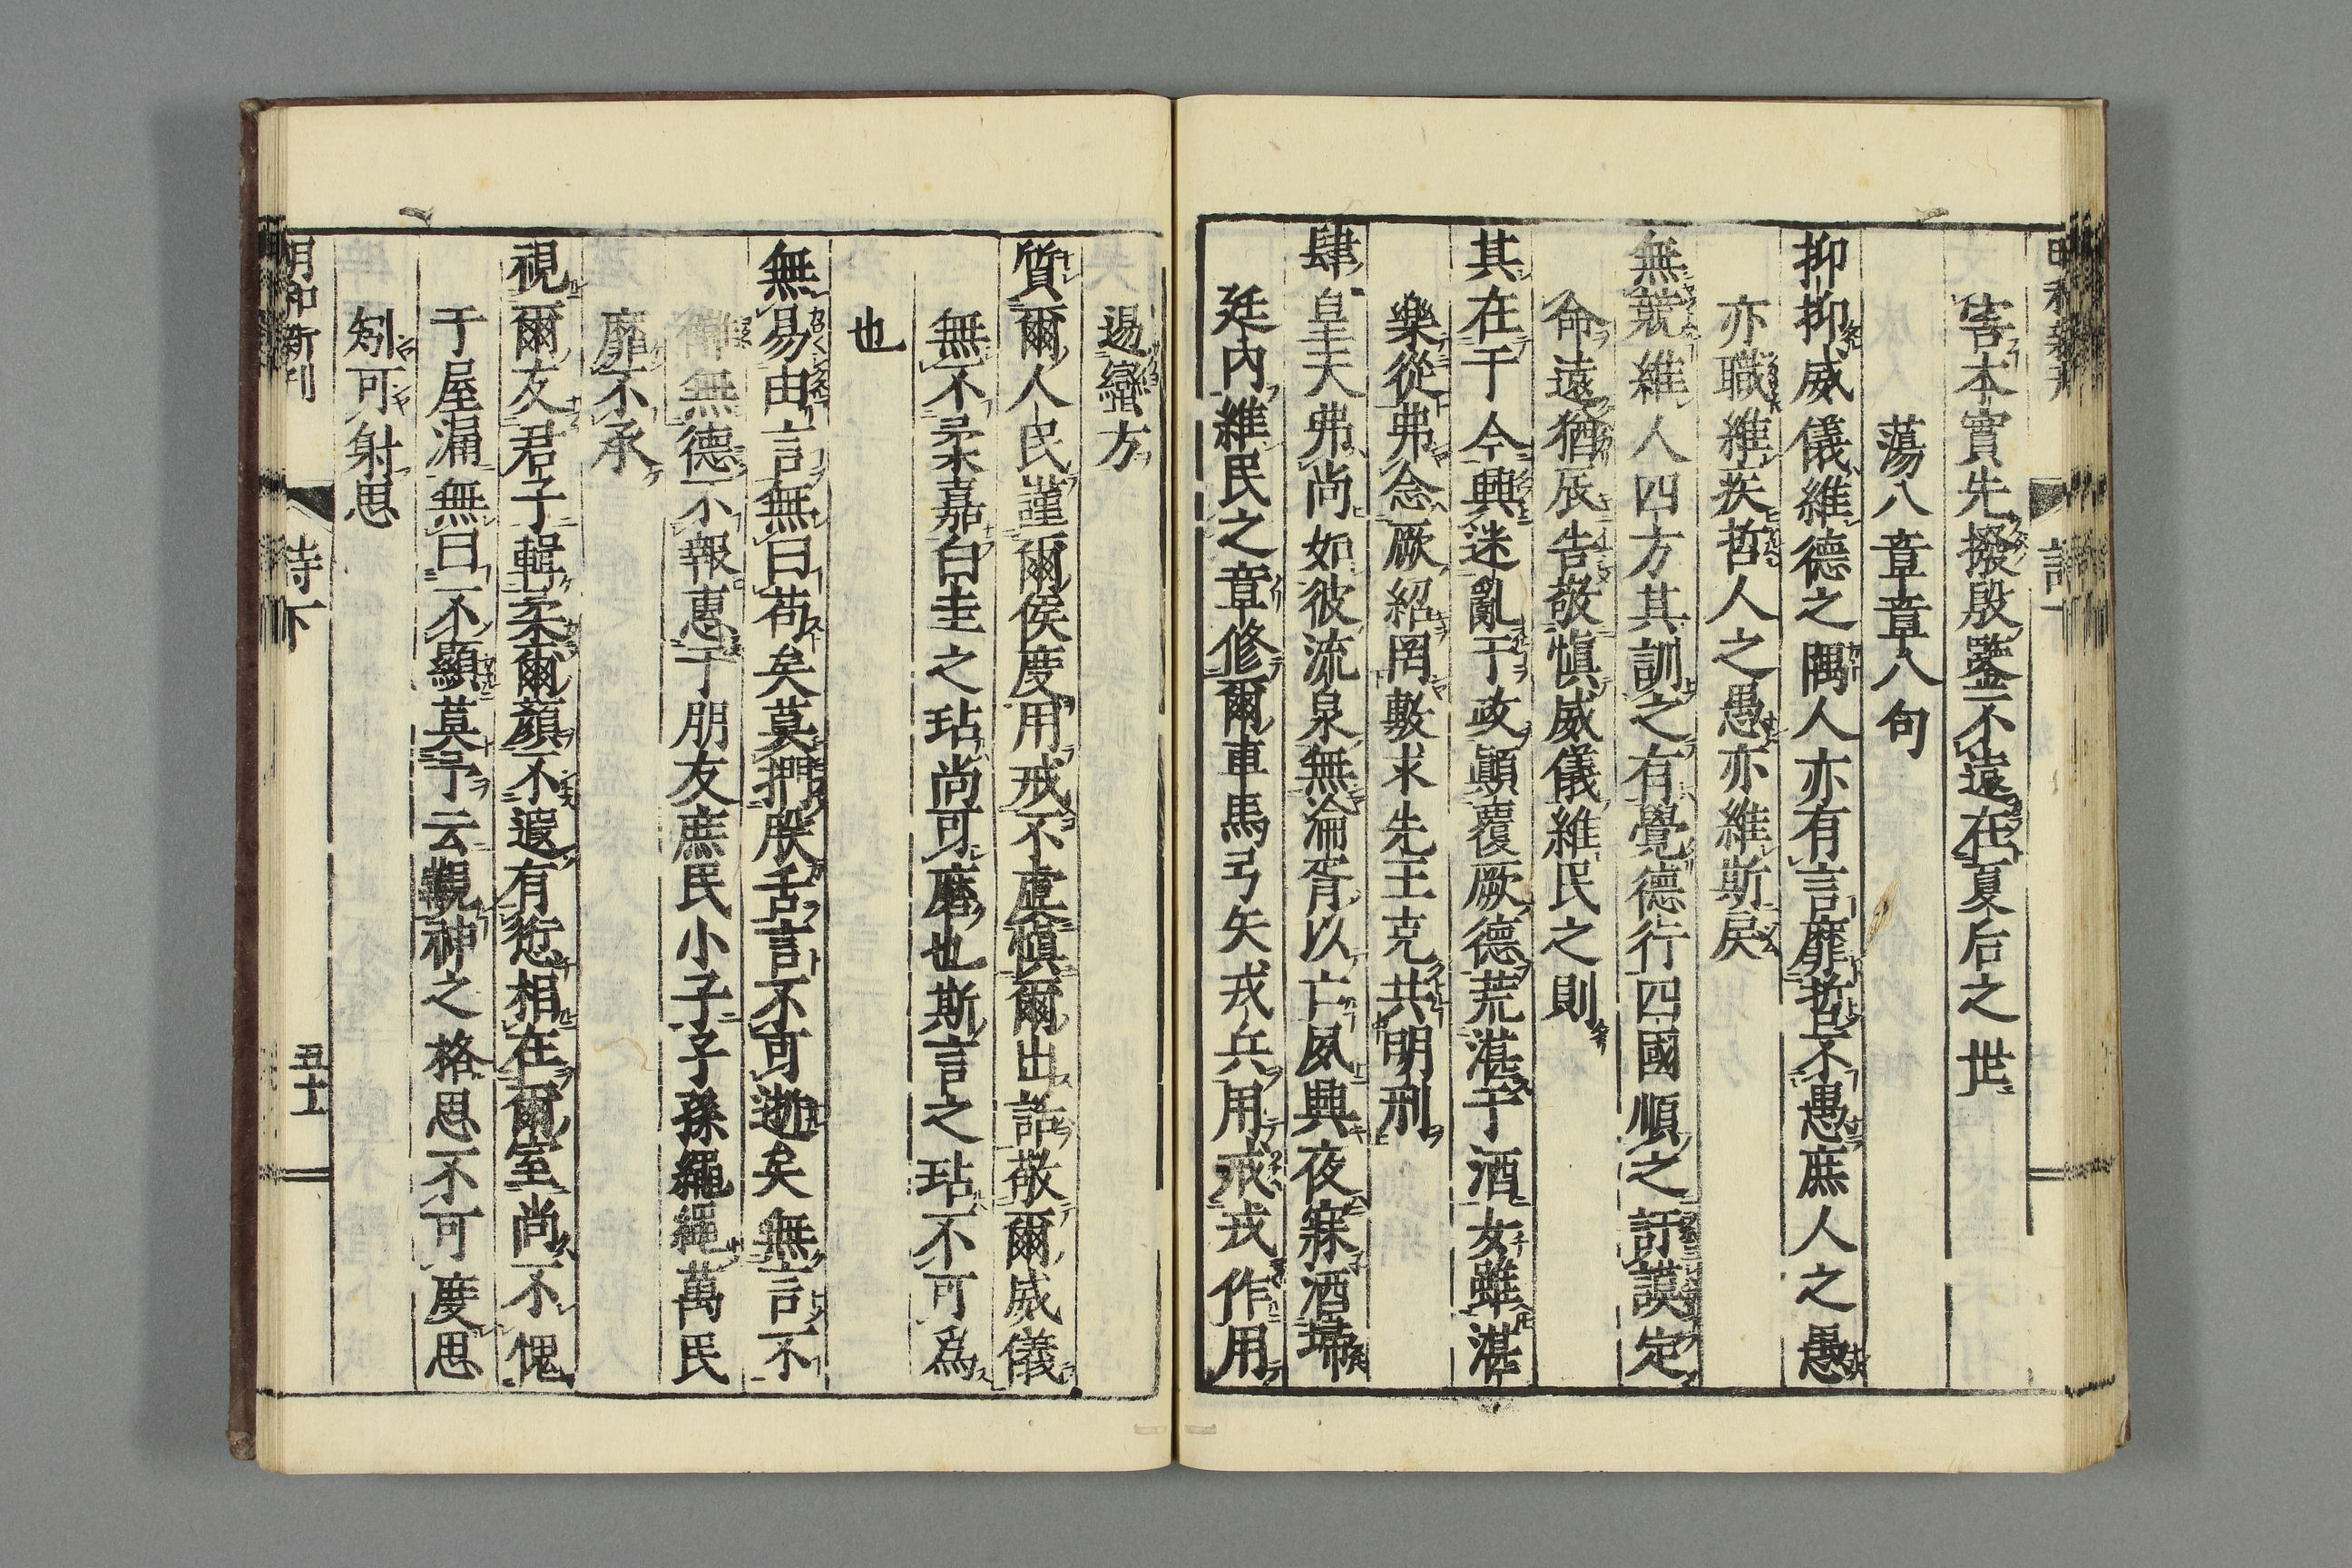 害本實先撥殷鑒不遠在夏后之世
蕩八章章八句
抑抑威儀維德之隅人亦有言靡哲不愚庶人之愚
亦職維疾哲人之愚亦維斯戾
無競維人四方其訓之有覺德行四國順之訏謨定
命遠猶辰告敬愼威儀維民之則
其在于今興迷亂于政顚覆厥德荒湛于酒女雖湛
樂從弗念厥紹罔敷求先王克共明刑
肆皇天弗尚如彼流泉無淪胥以亡夙興夜寐洒埽
廷內維民之章修爾車馬弓矢戎兵用戒戎作用
逷蠻方
質爾人民謹爾侯度用戒不虞愼爾出話敬爾威儀
無不柔嘉白圭之玷尚可磨也斯言之玷不可爲
也
無易由言無曰苟矣莫捫朕舌言不可逝矣無言不
讎無德不報惠于朋友庶民小子子孫繩繩萬民
靡不承
視爾友君子輯柔爾顏不遐有愆相在爾室尚不愧
于屋漏無曰不顯莫予云覯神之格思不可度思
矧可射思
明和新刊 詩下 五十一